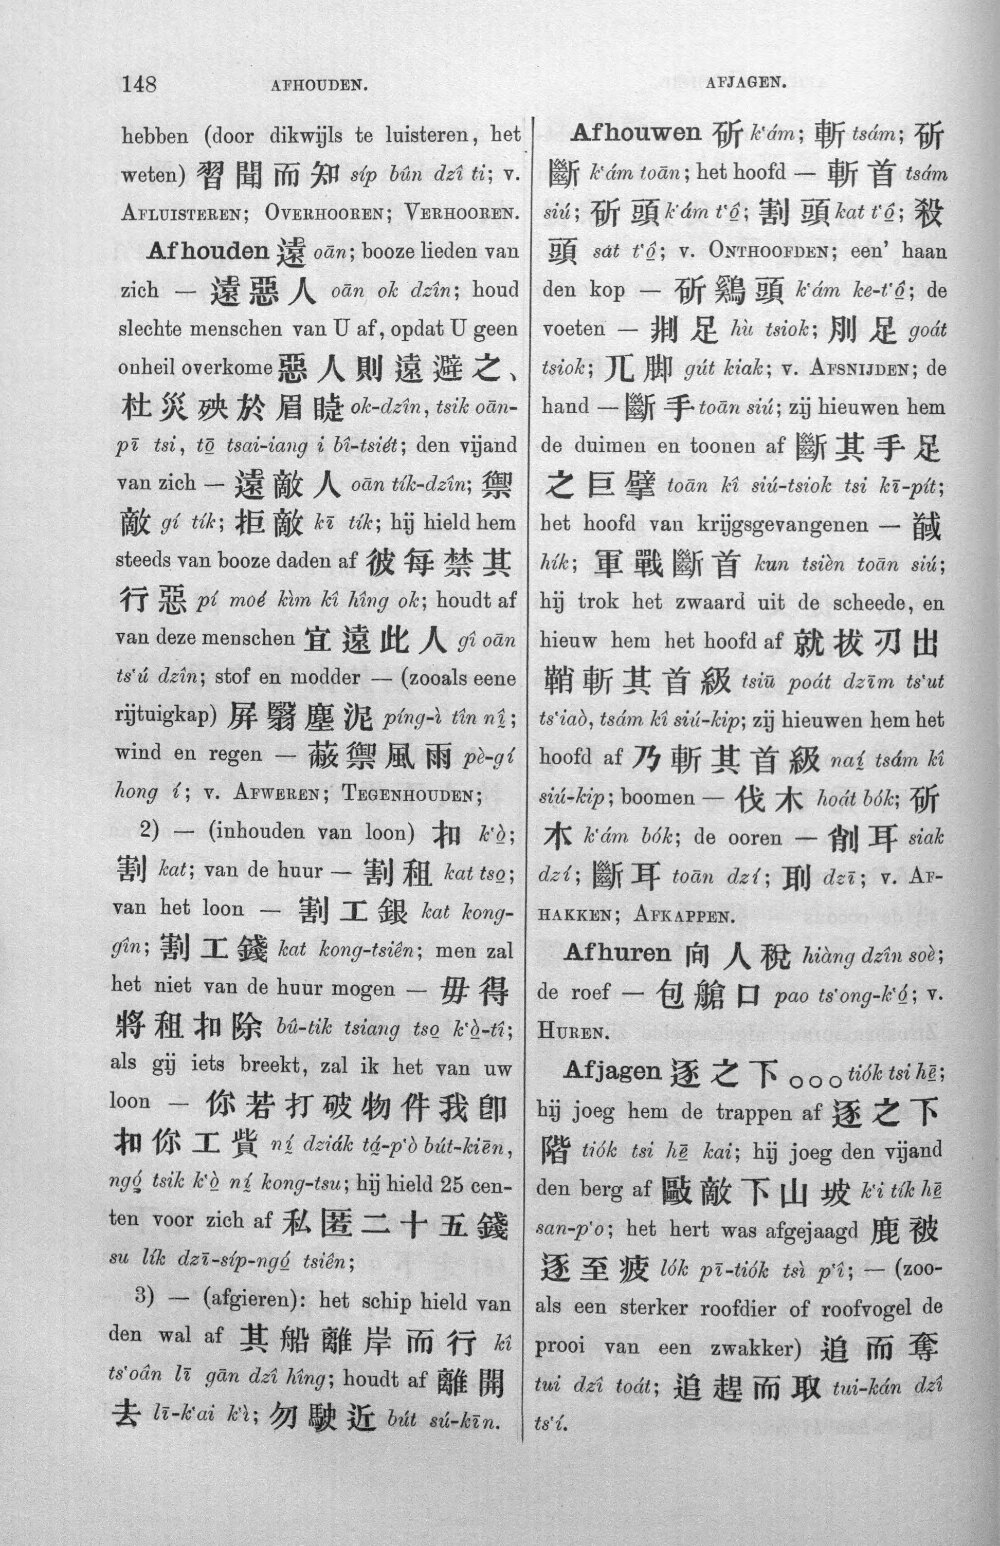 148
AFHOUDEN.
hebben (door dikwijls te luisteren, het
weten) 習聞而知 síp bûn dzî ti; v.
AFLUISTEREN; OVERHOOREN; VERHOOREN.
Afhouden 遠 oān; booze lieden van
zich — 遠惡人 oān ok dzîn; houd
slechte menschen van U af, opdat U geen
onheil overkome 惡人則遠避之、
杜災殃於眉睫 ok-dzîn, tsik oān-
pī tsi, tō̤ tsai-iang i bî-tsiét; den vijand
van zich — 遠敵人 oān tík-dzîn; 禦
敵 gí tík; 拒敵 kī tík; hij hield hem
steeds van booze daden af 彼每禁其
行惡 pí moé kìm kî hîng ok; houdt af
van deze menschen 宜遠此人 gî oān
ts‘ú dzîn; stof en modder — (zooals eene
rijtuigkap) 屏翳塵泥 píng-ì tîn nî̤;
wind en regen — 蔽禦風雨 pè-gí
hong í; v. AFWEREN; TEGENHOUDEN;
2) — (inhouden van loon) 扣 k‘ò̤;
割 kat; van de huur — 割租 kat tso̤;
van het loon — 割工銀 kat kong-
gîn; 割工錢 kat kong-tsiên; men zal
het niet van de huur mogen — 毋得
將租扣除 bû-tik tsiang tso̤ k‘ò̤-tî;
als gij iets breekt, zal ik het van uw
loon — 你若打破物件我卽
扣你工貲 ní̤ dziák tá̤-p‘ò bút-kiēn,
ngó̤ tsik k‘ò̤ ní̤ kong-tsu; hij hield 25 cen-
ten voor zich af 私匿二十五錢
su lík dzī-síp-ngó̤ tsiên;
3) — (afgieren): het schip hield van
den wal af 其船離岸而行 kî
ts‘oân lī gān dzî hîng; houdt af 離開
去 lī-k‘ai k‘ì; 勿駛近 bút sú-kīn.
AFJAGEN.
Afhouwen 斫 k‘ám; 斬 tsám; 斫
斷 k‘ám toān; het hoofd — 斬首 tsám
siú; 斫頭 k‘ám t‘ô̤; 割頭 kat t‘ô̤; 殺
頭 sát t‘ô̤; v. ONTHOOFDEN; een’ haan
den kop — 斫鷄頭 k‘ám ke-t‘ô̤; de
voeten — 剕足 hù tsiok; 刖足 goát
tsiok; 兀脚 gút kiak; v. AFSNIJDEN; de
hand — 斷手 toān siú; zij hieuwen hem
de duimen en toonen af 斷其手足
之巨擘 toān kî siú-tsiok tsi kī-pít;
het hoofd van krijgsgevangenen — 馘
hík; 軍戰斷首 kun tsièn toān siú;
hij trok het zwaard uit de scheede, en
hieuw hem het hoofd af 就拔刃出
鞘斬其首級 tsiū poát dzīm ts‘ut
ts‘iaò, tsám kî siú-kip; zij hieuwen hem het
hoofd af 乃斬其首級 naí̤ tsám kî
siú-kip; boomen — 伐木 hoát bók; 斫
木 k‘ám bók; de ooren — 削耳 siak
dzí; 斷耳 toān dzí; 刵 dzī; v. AF-
HAKKEN; AFKAPPEN.
Afhuren 向人稅 hiàng dzîn soè;
de roef — 包艙口 pao ts‘ong-k‘ó̤; v.
HUREN.
Afjagen 逐之下○○○ tiók tsi hē̤;
hij joeg hem de trappen af 逐之下
階 tiók tsi hē̤ kai; hij joeg den vijand
den berg af 毆敵下山坡 k‘i tík hē̤
san-p‘o; het hert was afgejaagd 鹿被
逐至疲 lók pī-tiók tsì p‘î; — (zoo-
als een sterker roofdier of roofvogel de
prooi van een zwakker) 追而奪
tui dzî toát; 追趕而取 tui-kán dzî
ts‘í.